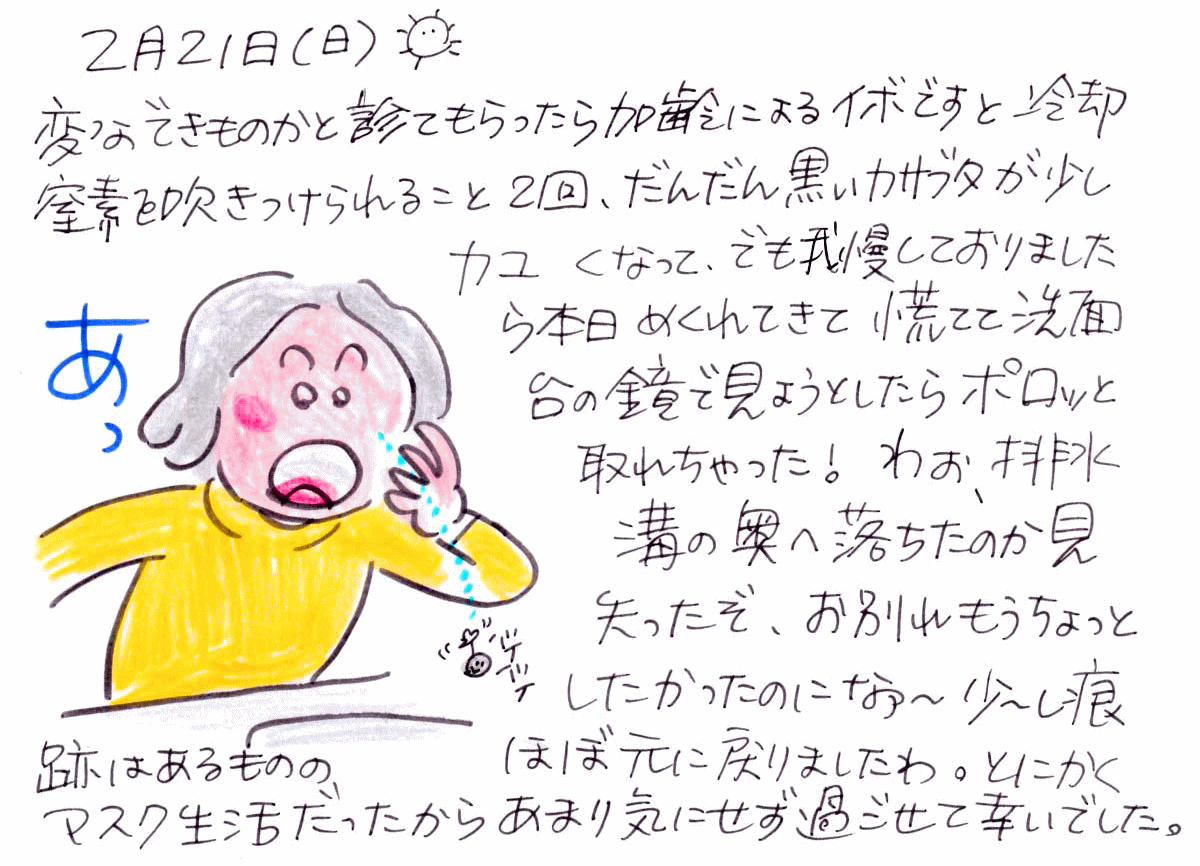 2月21日(日)
変なできものかと診てもらったら加齢によるイボですと冷却
窒素を吹きつけられること2回、だんだん黒いカサブタが少し
カユくなって、でも我慢しておりました
ら本日めくれてきて慌てて洗面
あっ
台の鏡で見ようとしたらポロッと
取れちゃった!わお、排水
溝の奥へ落ちたのか見
失ったぞ、お別れもうちょっと
したかったのになァ〜少〜し痕
跡はあるものの、ほぼ元に戻りましたわ。とにかく
マスク生活だったからあまり気にせず過ごせて幸いでした。